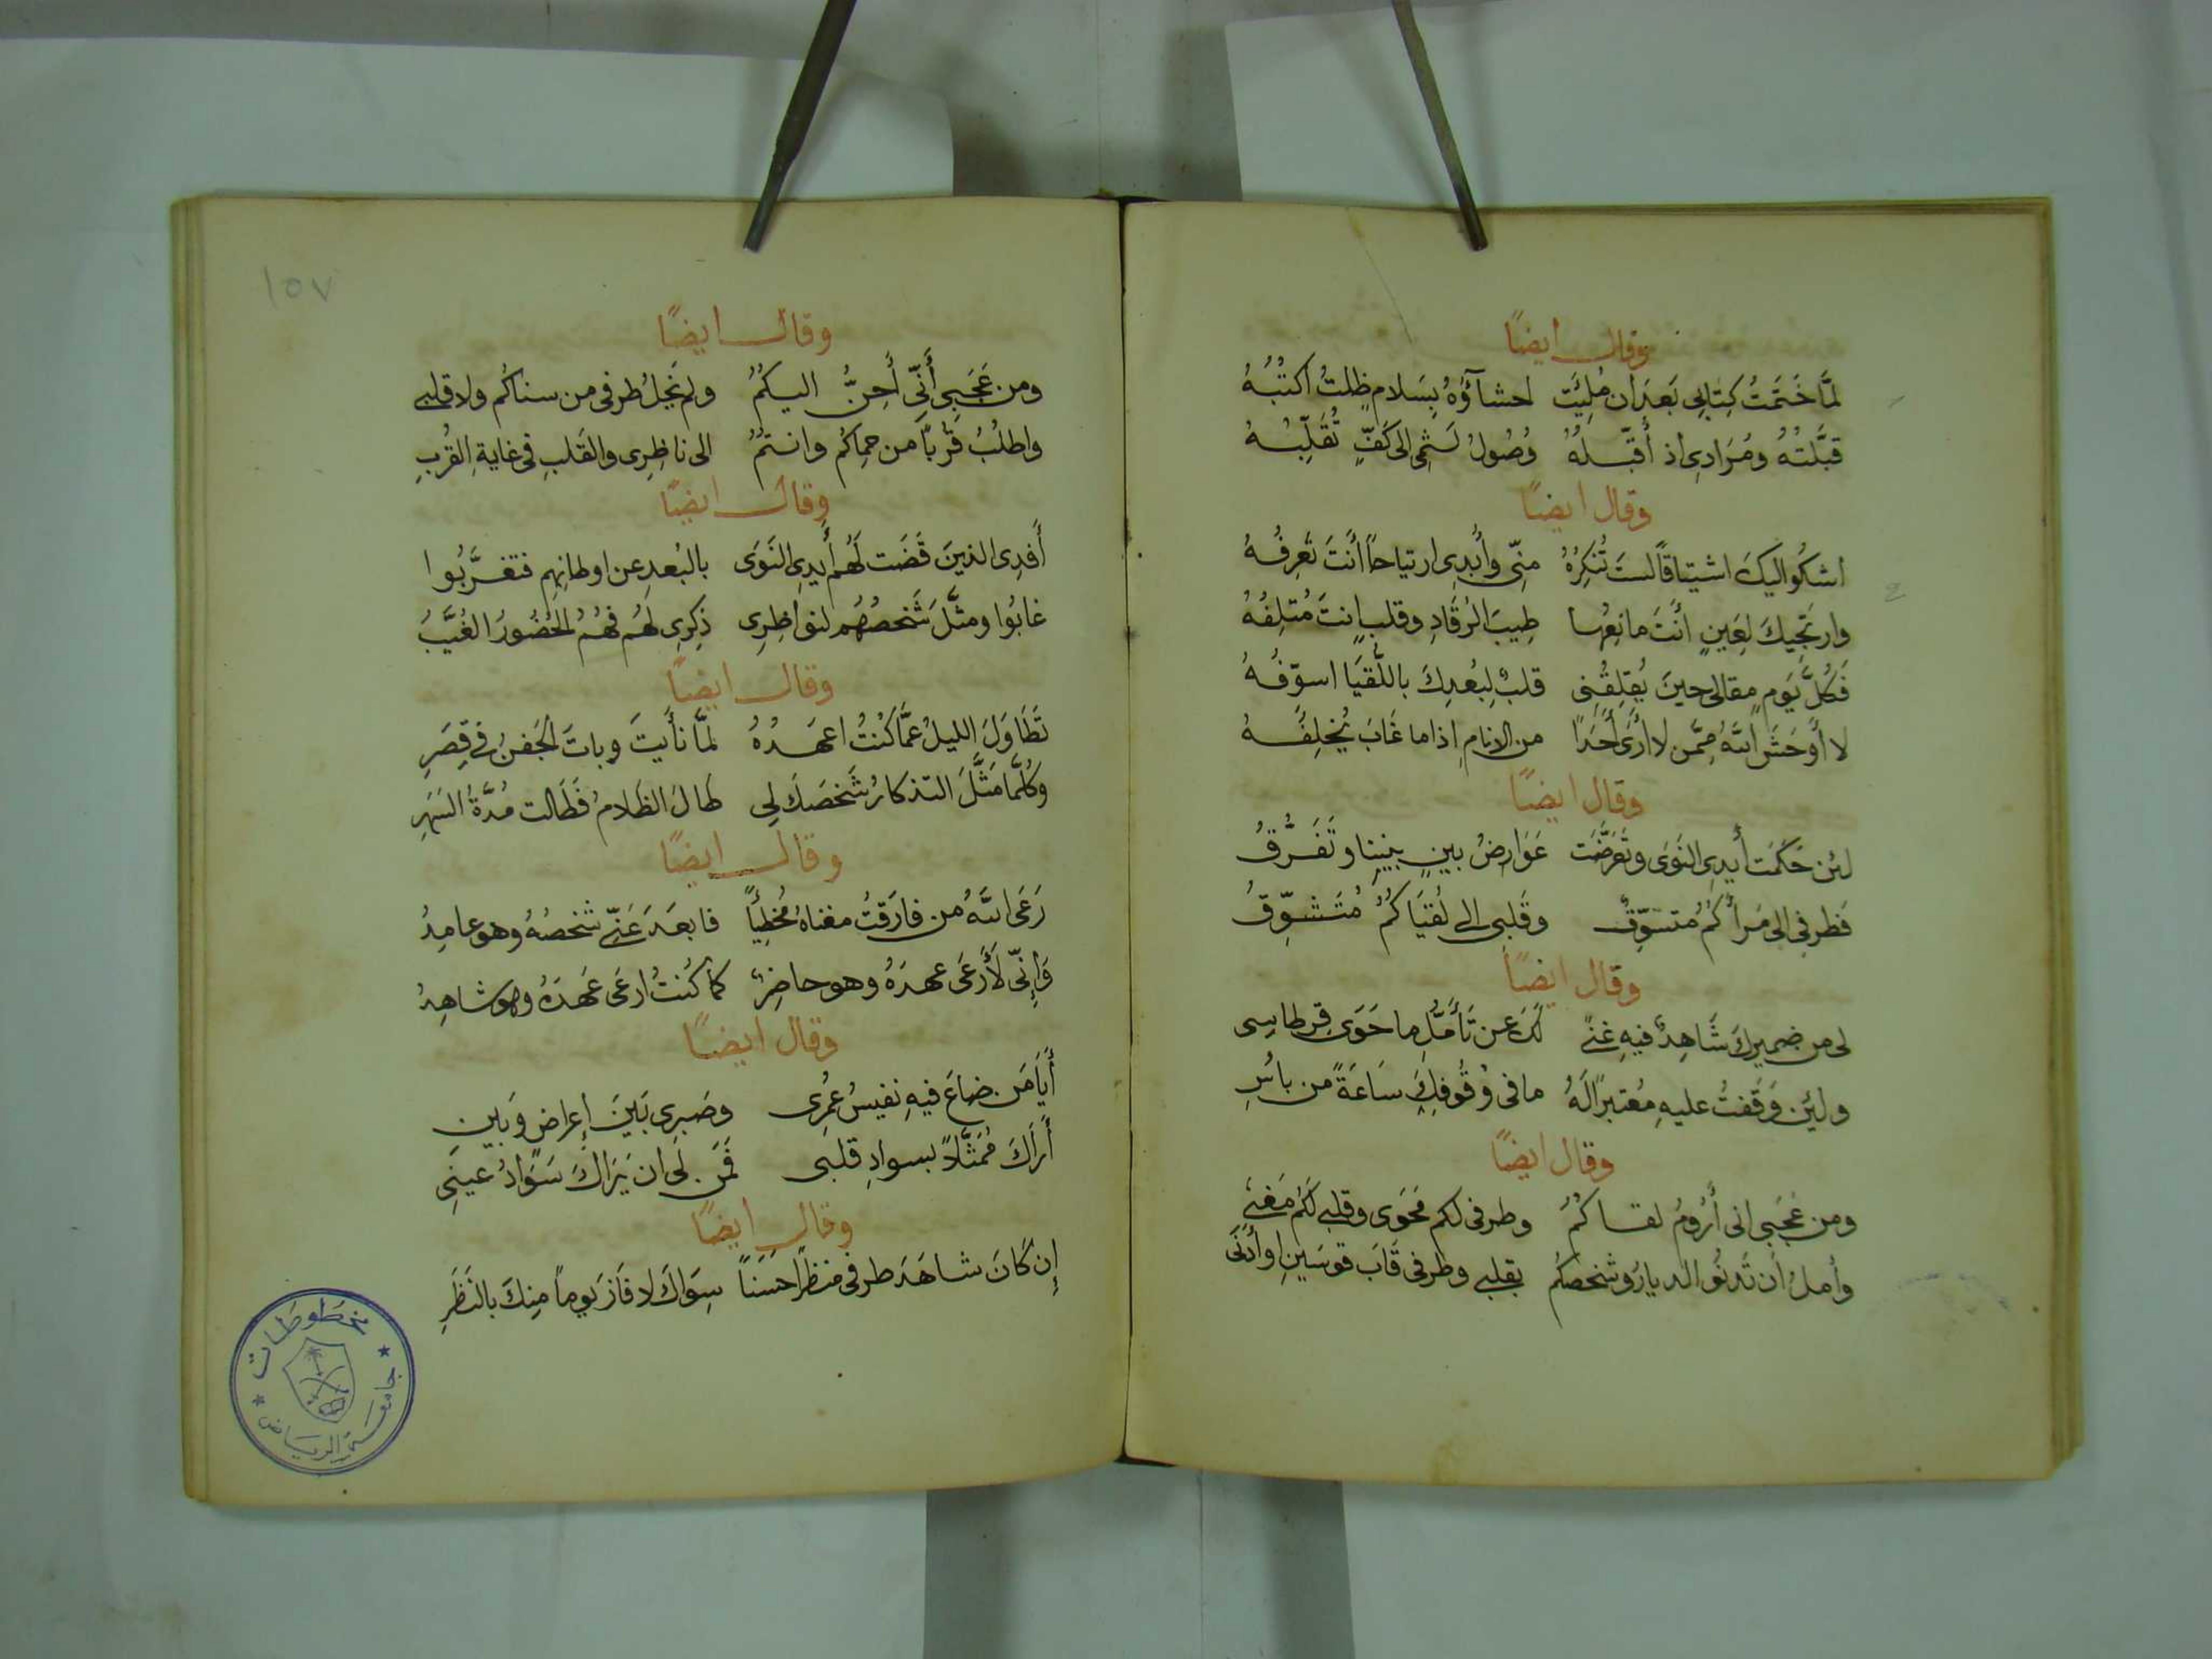 وقال ايضًا
لمَّا خَتَمتُ كِتابِى بَعدَ ان مُلِئَت احشآؤُهُ بِسَلامٍ ظِلتُ اكتُبُهُ
قبَّلتُهُ ومُرَادِى أذ أُقبِّلهُ وُصُولُ لَثمِى الى كَفٍّ تُقَلِّبُهُ
وقال ايضًا
اشكُو اليكَ اشتياقًا لستَ تُنكِرُهُ منِّى وأُبدِى ارتياحاً أنتَ تَعرِفُهُ
وارتجِيكَ لِعَينٍ أنتَ مانِعُها طِيبَ الرُقَادِ وقلبٍ انتَ مُتلِفُهُ
فَكُلَّ يَومٍ مقالى حينَ يُقلِقُنِى قلبٌ لِبُعدِكَ باللُّقيَا اسوّفُهُ
لا أَوحَشَ اللهُ مِمَّن لا أرَى أحَدًا من الانامِ اذا ما غَابَ يُخلِفُهُ
وقال ايضًا
لئن حَكَمَت أيدِى النَوَى وتَعَرَّضَت عَوَارِضُ بينٍ بيننا وتَفَرُّقُ
فَطرفِى الى مَرأَكُمُ متشوّقٌ وقَلبى الى لُقيَاكُمُ مُتَشوِّقُ
وقال ايضًا
لى من ضميرك شَاهِدٌ فيهِ غِنىً لَكَ عن تَأَمُّلِ ما حَوَى قِرطاسِى
ولئن وَقَفتُ عليهِ مُعتبرًا لَهُ ما فى وُقُوفِكَ سَاعَةً من باسُ
وقال ايضًا
ومن عَجَبى انى أَرُومُ لقاكُمُ وطرفى لكم مَحوَى وقلبى لَكُم مَغنى
وأملُ أن تَدنُو الديارُ وشخصُكُم بقلبى وطرفى قَابَ قوسَينِ او أَدنَى
١٥٧
وقال ايضًا
ومن عَجَبِى أَنِّى أَحِنُّ اليكُمُ ولم يَخلُ طرفى من سناكُم ولا قلبى
واطلُبُ قُرباً من حِماكُم وانتمُ الى ناظِرِى والقَلبِ فى غايةِ القُربِ
وقال ايضًا
أَفدِى الذينَ قَضَت لَهُم أيدِى النَوَى بالبُعدِ عن اوطانِهِم فتغرَّبُوا
غابُوا ومثَّلَ شَخصُهُم لنواظِرِى ذِكرِى لَهُم فهُمُ الحُضُورُ الغُيَّبُ
وقال ايضًا
تَطَاوَلَ الليلُ عمَّا كُنتُ اعهَدُهُ لمَّا نأيتَ وباتَ الجَفنُ فى قِصَرِ
وكلَّما مَثَّلَ التذكارُ شَخصَكَ لِى طالَ الظَلامُ فَطَالت مُدَّةُ السَهَرِ
وقال ايضًا
رَعَى اللهُ من فارَقتُ مغناهُ مُخطِيًا فابعَدَ عَنِّى شخصُهُ وهو عامِدُ
وَإِنِّى لَأَرعَى عهدَهُ وهو حاضِرٌ كما كُنتُ ارعَى عَهدَهُ وهو شاهِدُ
وقال ايضًا
أَيَا مَن ضاعَ فيهِ نفيسُ عُمرِى وصَبرِى بَينَ إِعراضٍ وَبَينِ
أَرَاكَ مُمَثَّلاً بسوادِ قلبى فَمَن لى ان يَرَاكَ سَوَادُ عينِى
وقال ايضًا
إن كَانَ شاهَدَ طرفى منظرًا حَسَناً سِوَاكَ لا فَازَ يوماً مِنكَ بالنَظَرِ
مخطوطات
جامعة الرياض